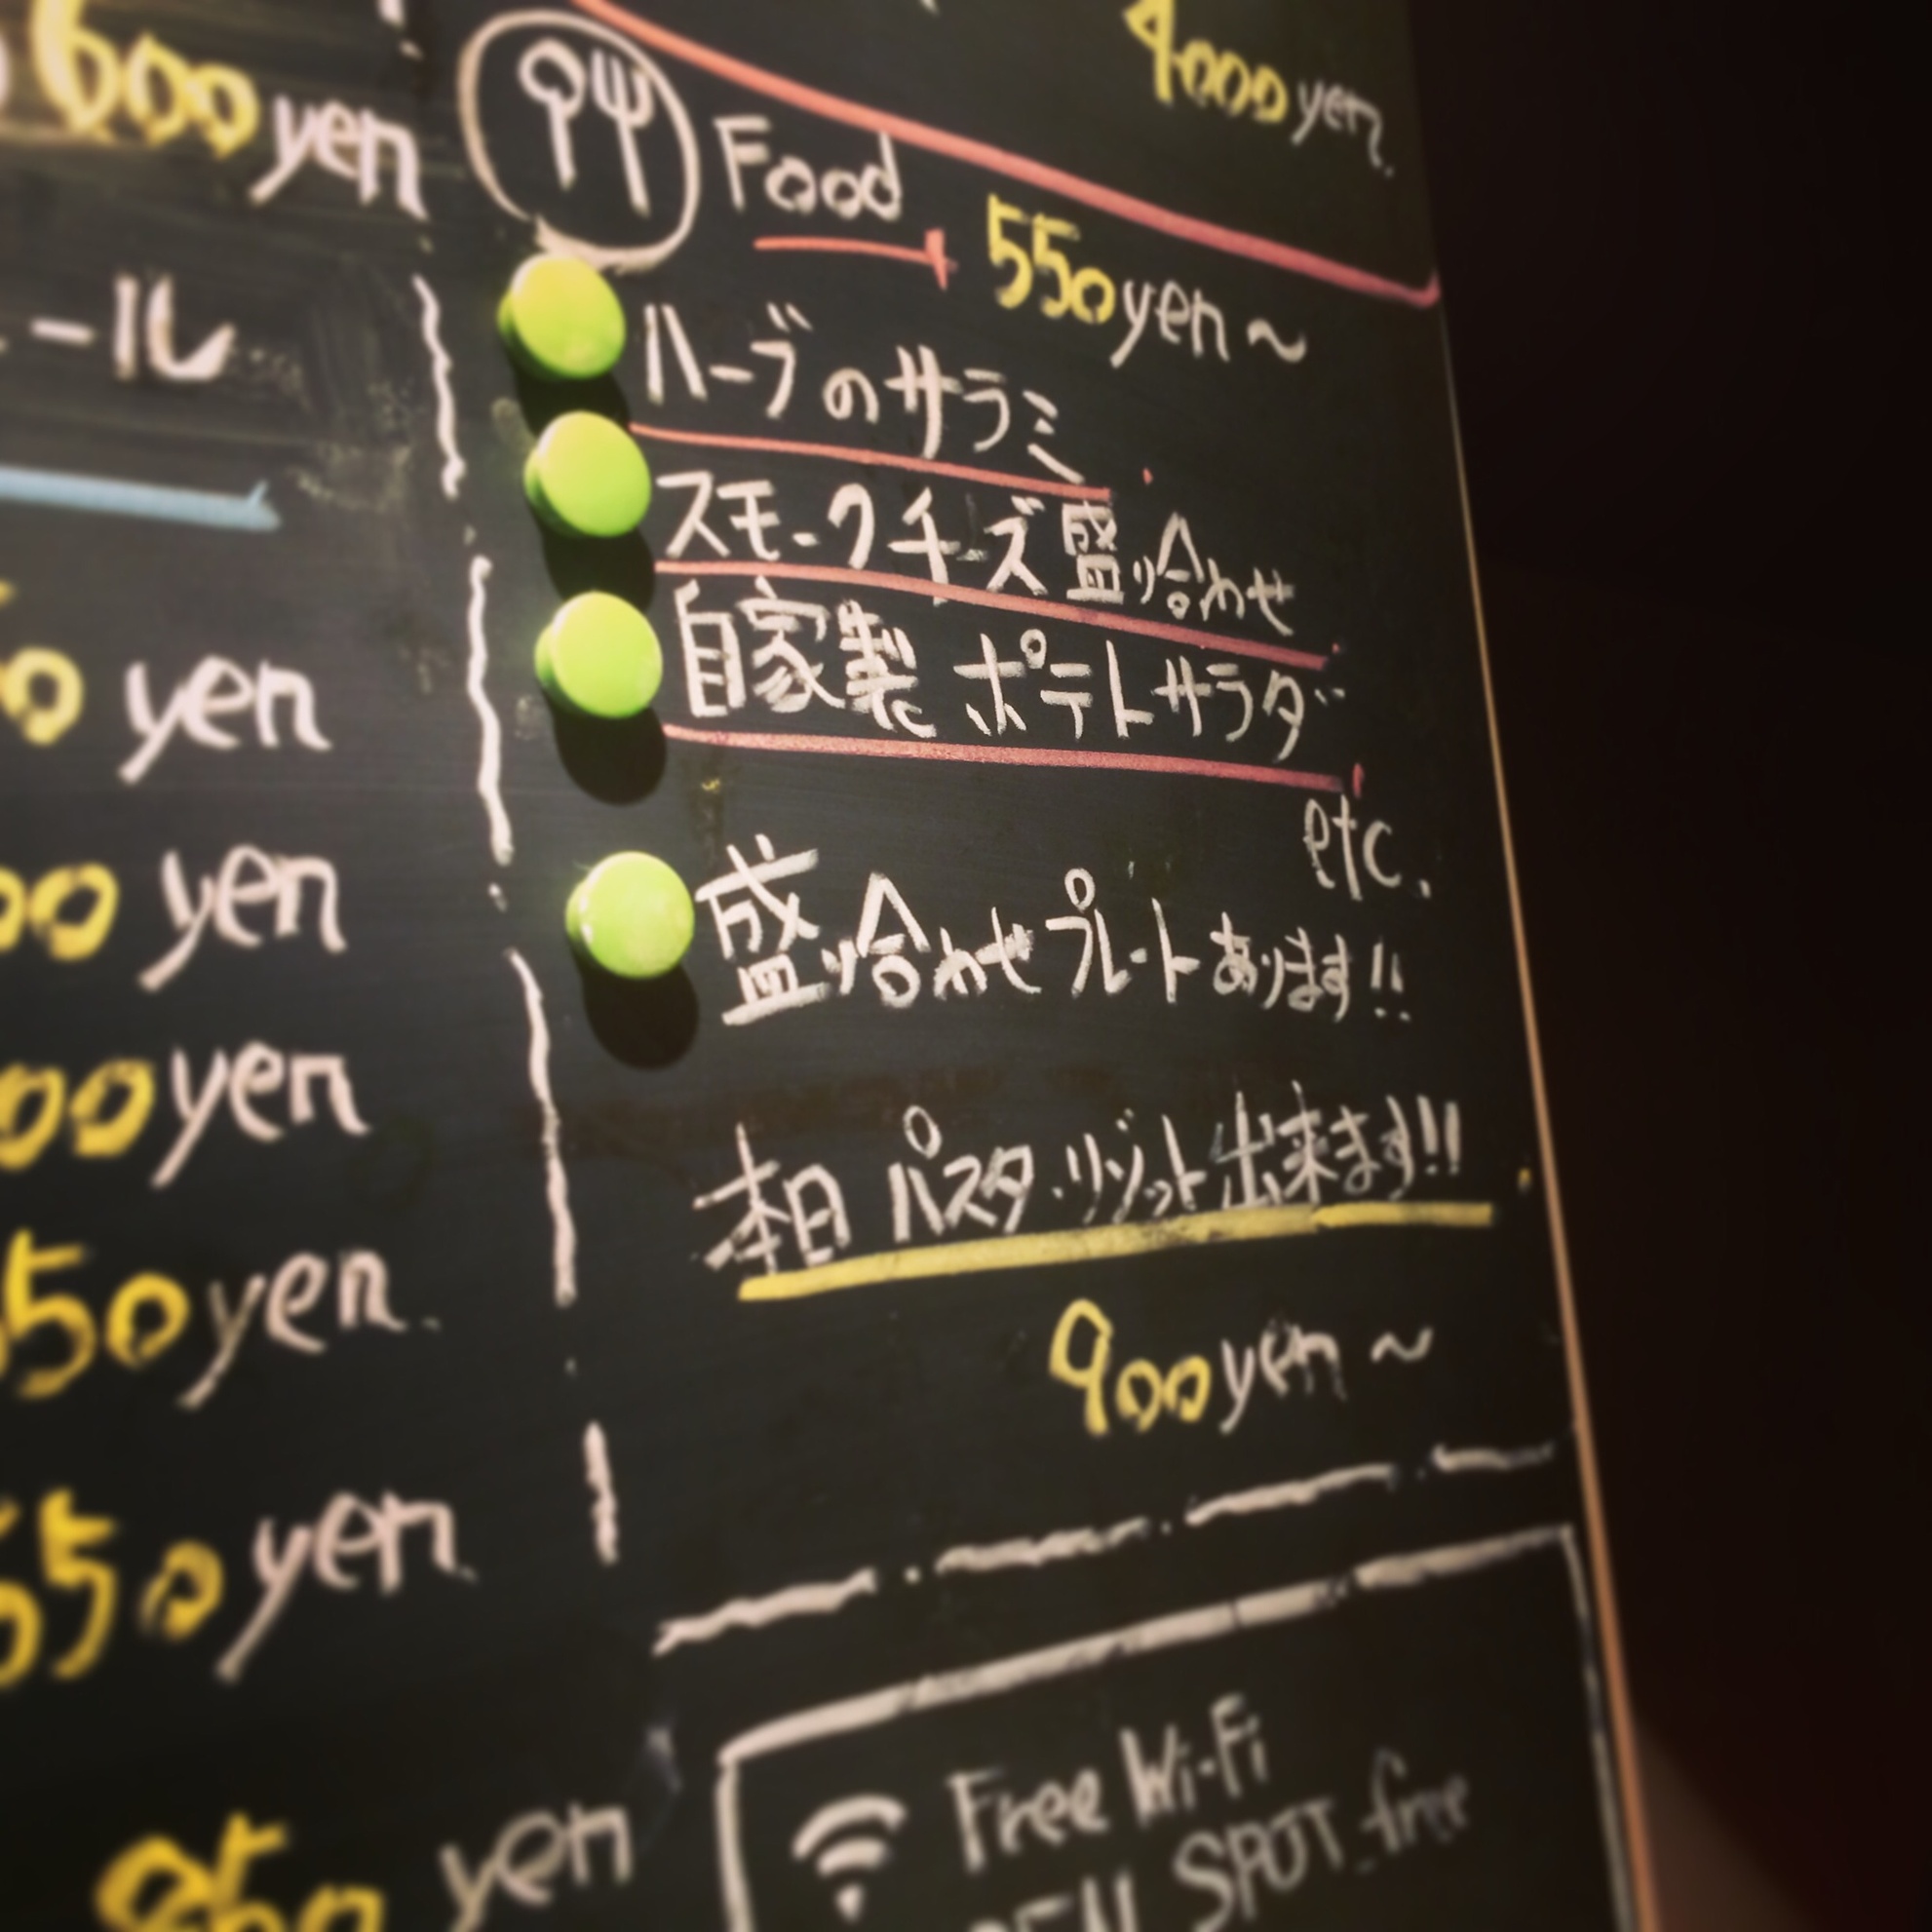 600yen
ール
yen
00 yen
00yen
50yen.
550yen.
850 yen
4000yen.
Food
550yen~
ハーブのサラミ
スモークチーズ盛り合わせ
自家製 ポテトサラダ
etc.
盛り合わせプレートあります!!
本日 パスタ・リゾット出来ます!!
900yen~
Free Wi-Fi
SPOT_free